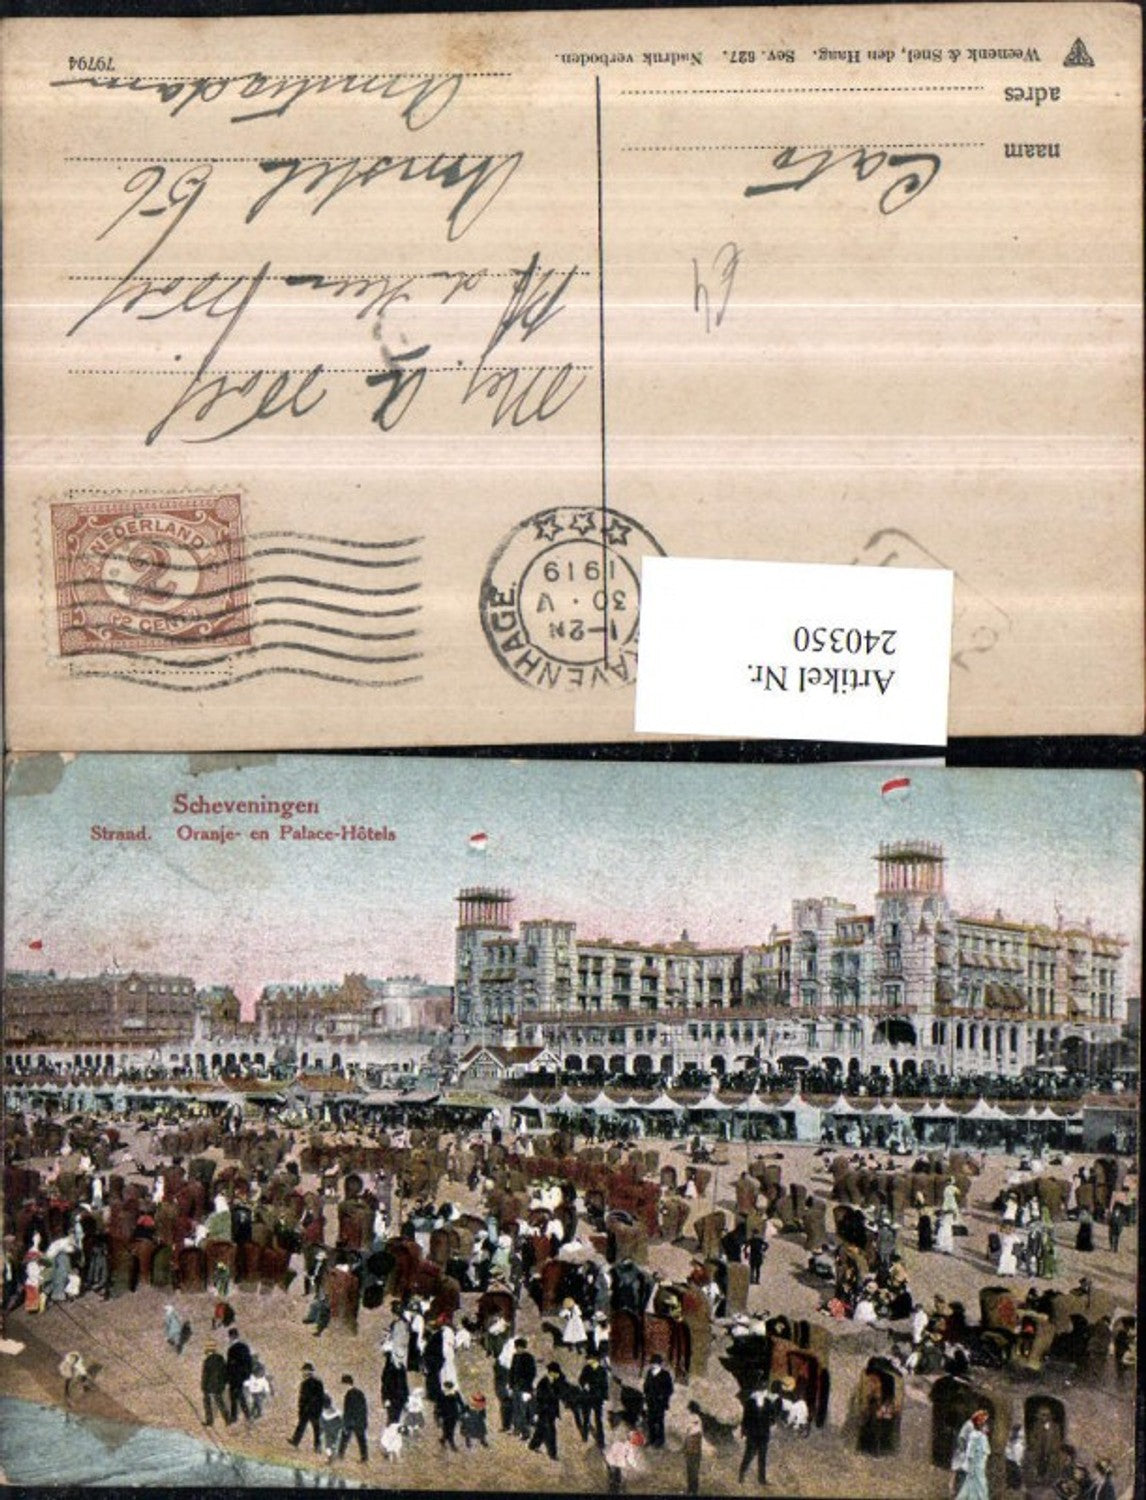 Weenenk & Snel, den Haag. Sev. 627. Nadruk verboden.
79794
adres
naam
Cato
£4
Mej. A Wolf
p/a den Heer Wolf
Amstel 56
Amsterdam
NEDERLAND
2
2 CENT
RAVENHAGE
1-2N
30. V
1919
Artikel Nr.
240350
Scheveningen
Strand. Oranje- en Palace-Hôtels